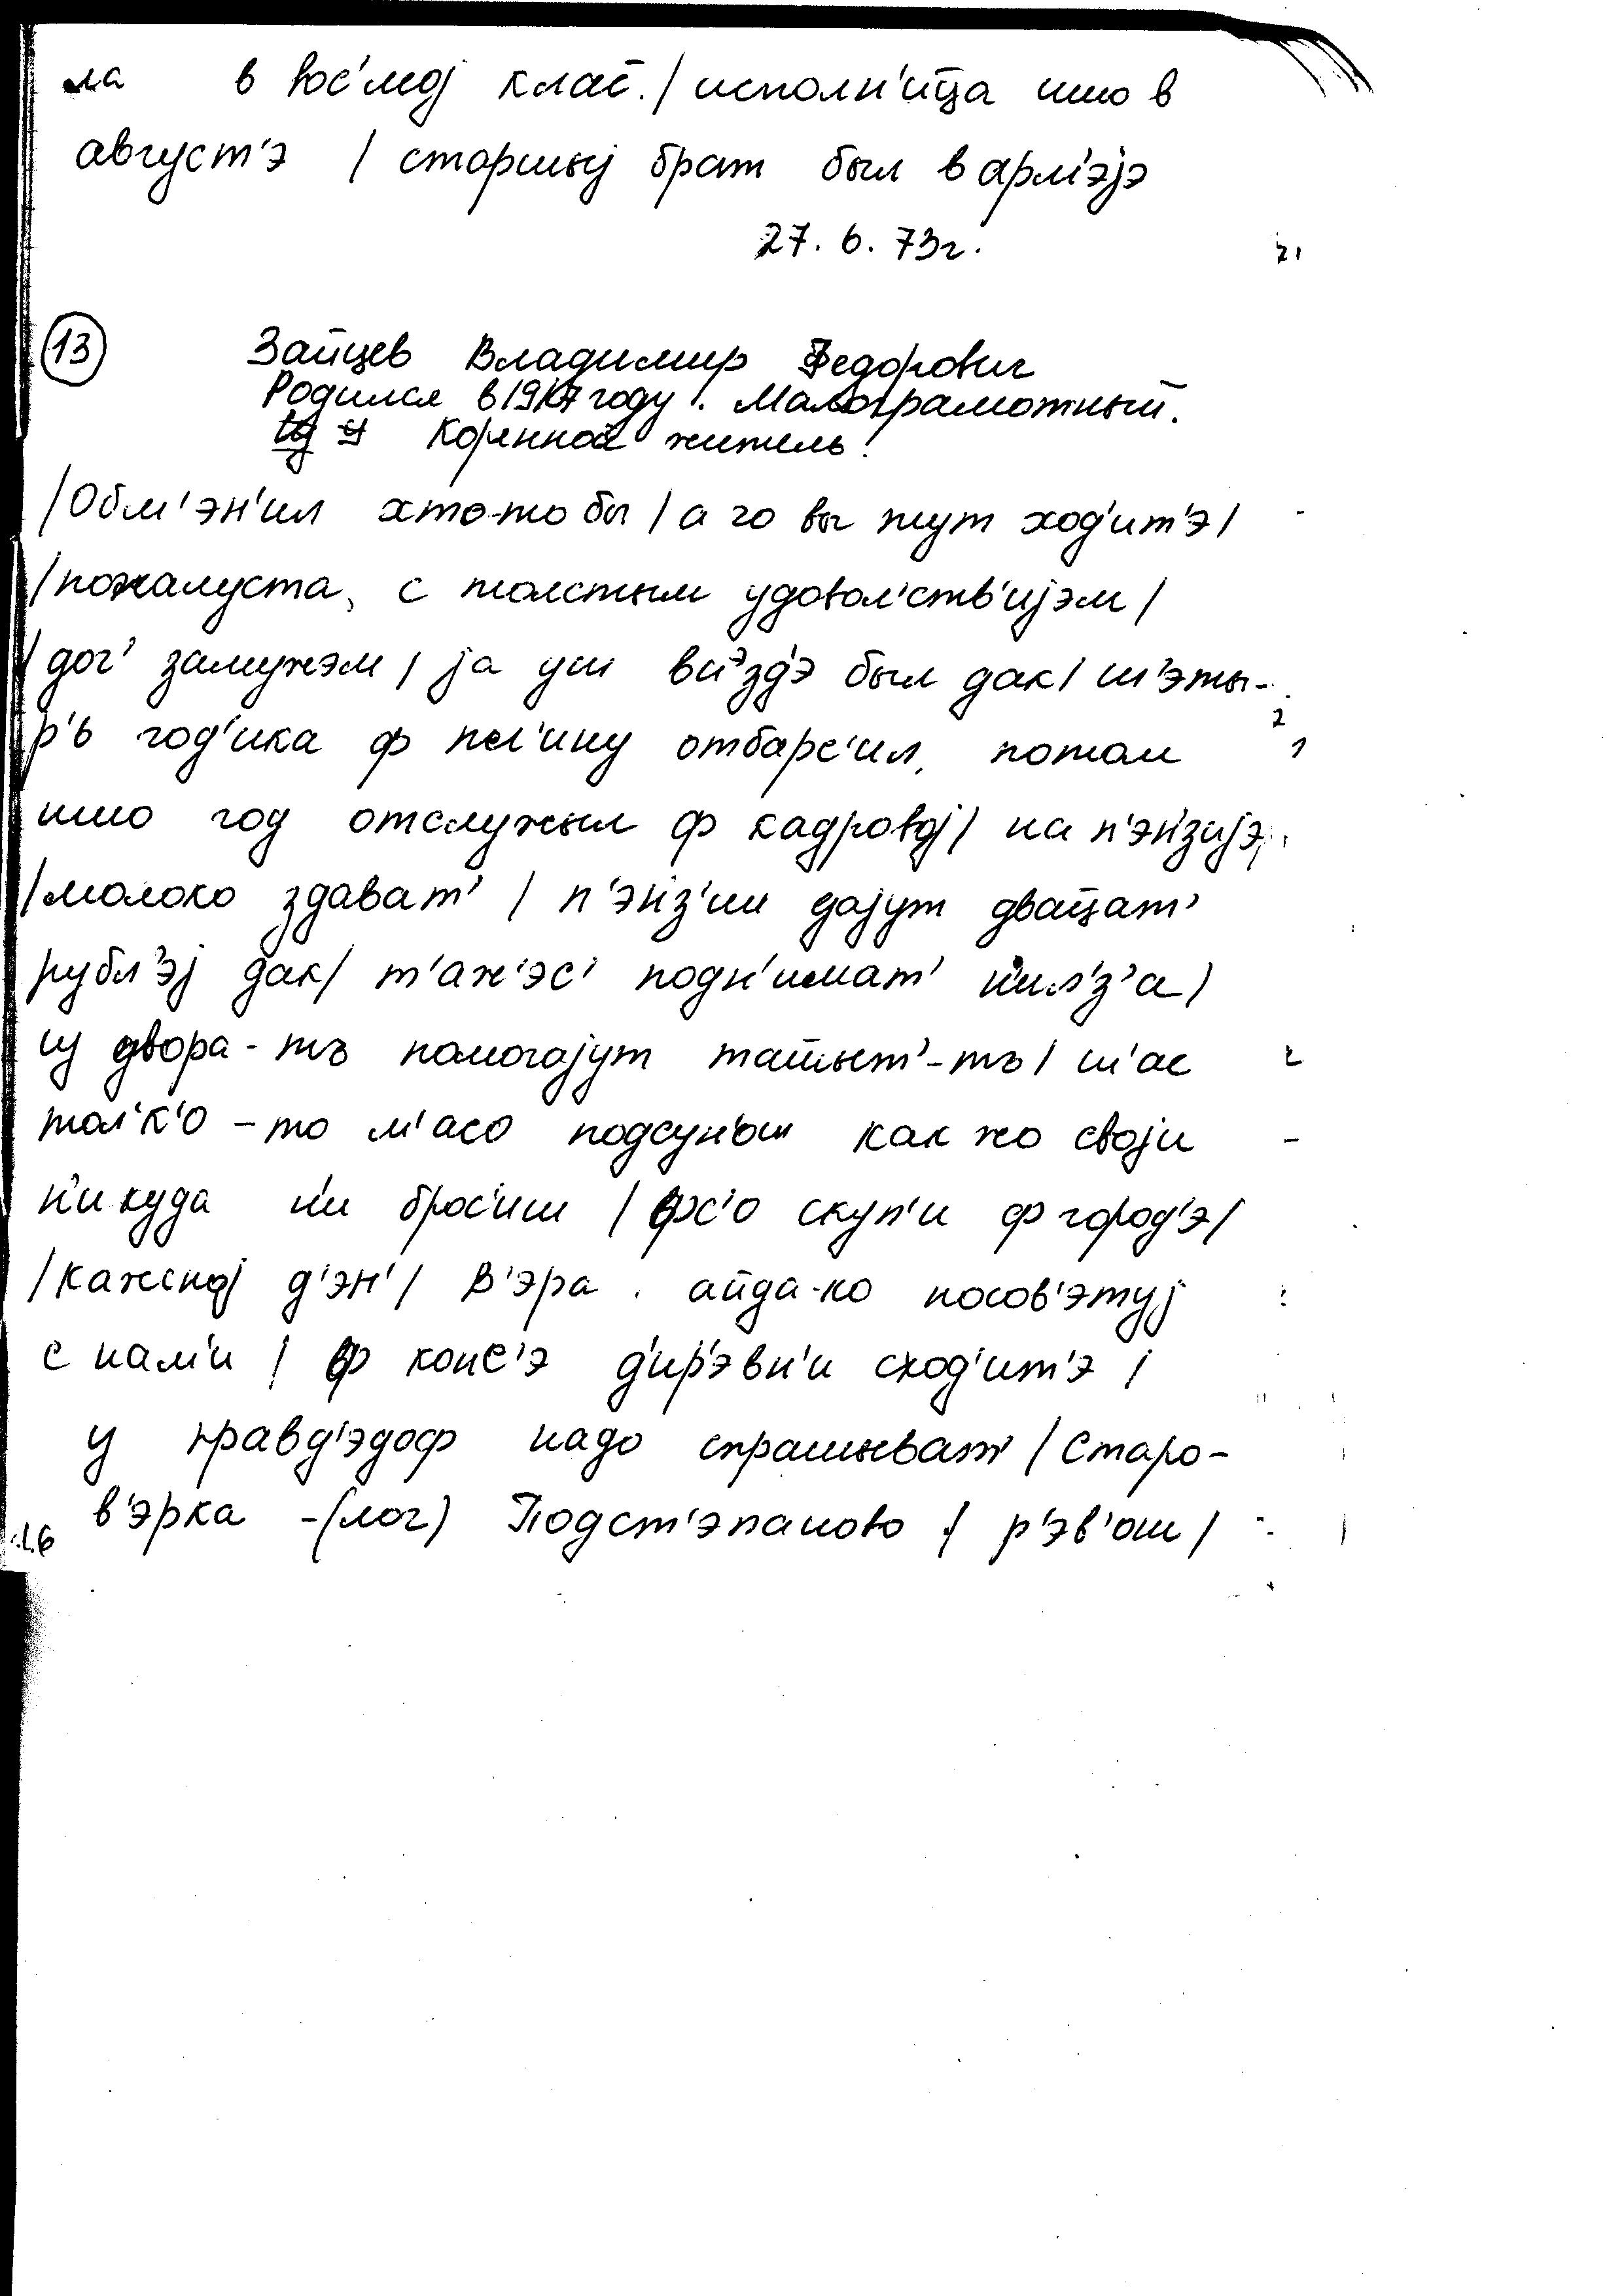 ла в вос'мој клас̄. / исполн'ит̄ца ишо в
август'э / старшыј брат был в арм'эјэ
27. 6. 73г.
13 Зайцев Владимир Федорович
Родился в 1907 году. Малограмотный.
Коренной житель.
/Обм'эн'ил хто-то бы / а го вы тут ход'ит'э /
/пожалуста, с толстым удовол'ств'ијэм /
/ доч' замужэм / ја уш в'изд'э был дак / ш'эты-
р'ь год'ика ф отбарс'ил, потом
ишо год отслужыл ф кадровој / на п'эн'зијэ,
/молоко здават' / п'эн'з'ии дајут двац̄ат'
рубл'эј дак / т'аж'эс' подн'имат' н'ил'з'а /
ц двора-тъ помогајут таш̄ыт'-тъ / ш'ас
тол'к'о-то м'асо подсун'ош как жо своји
н'икуда н'и брос'иш / фс'о скуп'и ф город'э /
/кажсној д'эн' / В'эра. айда-ко посов'этуј
с нам'и / ф конс'э д'ир'эвн'и сход'ит'э /
у правд'эдоф надо спрашыват' / Старо-
в'эрка -(лог) Подст'эпаново / р'эв'ош /